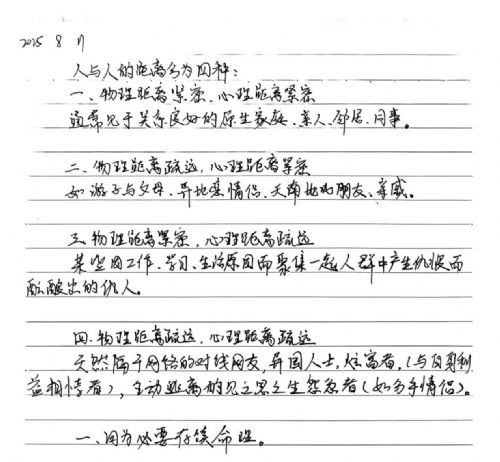 2025 8 11
人与人的距离分为四种：
一、物理距离紧密，心理距离紧密
通常见于关系良好的原生家庭、亲人、邻居、同事。
二、物理距离疏远，心理距离紧密
如游子与父母、异地恋情侣、天南地北的朋友、亲戚。
三、物理距离紧密，心理距离疏远
某些因工作、学习、生活原因而聚集一起人群中产生仇恨而
酝酿出的仇人。
四、物理距离疏远，心理距离疏远
天然隔于网络的对线网友，异国人士，炫富者，（与自身利
益相悖者），主动逃离的见之思之生怨怠者（如分手情侣）。
一、因为必要存续命理。